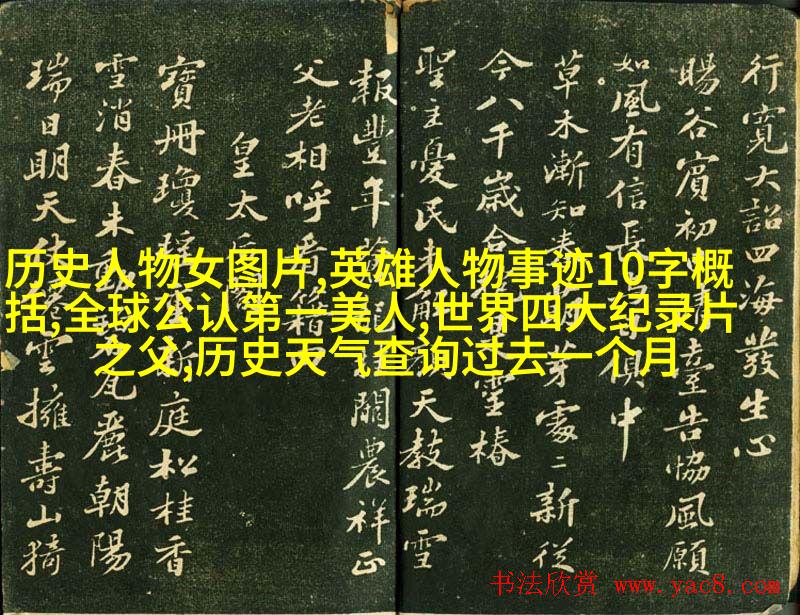 行寬大詔四海發生心
暘谷賓初臺告協風願
如風有信長俱中
草木漸知春芽處〻新從
今八千歲合靈椿
聖主憂民天教瑞雪
報豐年關農祥正
父老相呼看籍
皇太
寶冊瓊新庭松桂香
雪消春未瓦麗朝陽
瑞日明天雲擁壽山猗
历史人物女图片,英雄人物事迹10字概
括,全球公认第一美人,世界四大纪录片
之父,历史天气查询过去一个月
书法欣赏 www.yac8.com